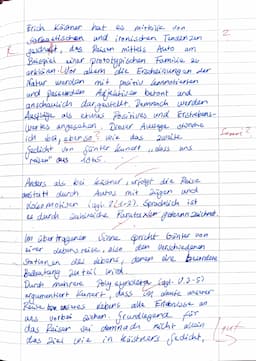 Erich Kästner hat es mithilfe von
sarkastischen und ironischen Tendenzen
geschafft, das Reisen mittels Auto am
Beispiel einer prototypischen Familie zu
erklären. Vor allem die Erscheinungen der
Natur wurden mit positiv konnotierten
und passenden Adjektiven betont und
anschaulich dargestellt. Demnach werden
Ausflüge als etwas Positives und Erlebens-
wertes angesehen. Dieser Aussage
ich bei, ebenso wie das zweite
Gedicht von Günter Kunert "dass uns
reisen" aus 1965.
Anders als bei Kästner, erfolgt die Reise
anstatt durch Autos mit Zügen und
Lokomotiven (vgl. Z. 1-3). Sprachlich ist
es durch zahlreiche Parataxen gekennzeichnet.
Im übertragenen Sinne spricht Günter von
einer Lebensreise, also den verschiedenen
Stationen des Lebens, denen eine besondere
Bedeutung zu teil wird.
Durch mehrere Polysyndeta (vgl. V. 2-5)
argumentiert Kunert, dass im Laufe einer
Reise bzw. eines Lebens alle Erlebnisse an
uns vorbei ziehen. Grundlegend für
das Reisen sei demnach nicht allein
das Ziel, wie in Kästners Gedicht,
gut